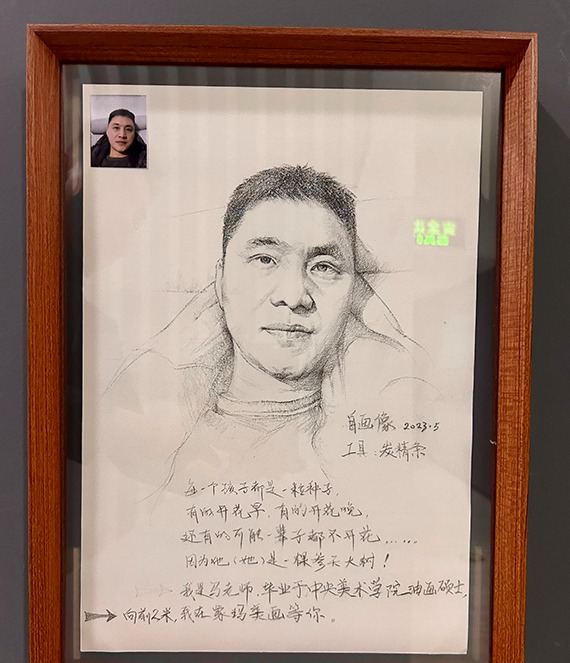 自画像 2023.5
工具:发精条
每一个孩子都是一粒种子,
有的开花早,有的开花晚,
还有的可能一辈子都不开花......
因为他(她)是一棵苍天大树!
我是马老师,毕业于中央美术学院油画硕士,
向前2米,我在蒙玛美画等你。